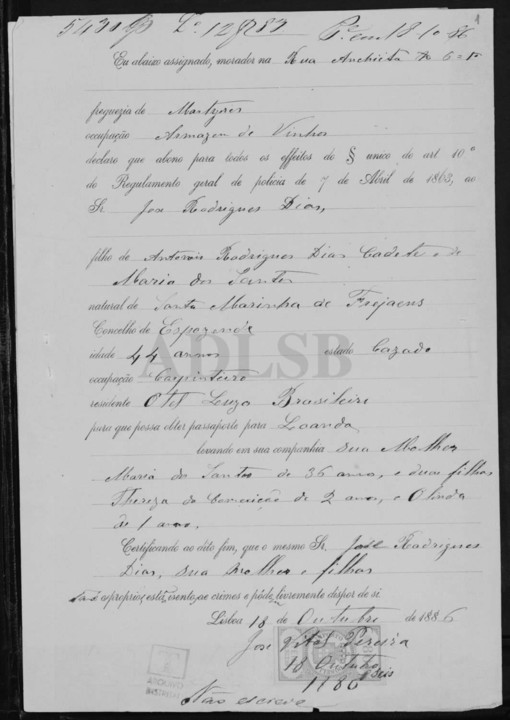 5430 Lº 12 f 83 Pº em 18 10 86
1
Eu abaixo assignado, morador na Rua Anchieta Nº 6 = 1º
freguezia de Martyres
occupação Armazem de Vinhos
declaro que abono para todos os effeitos do § unico do art 10º
do Regulamento geral de policia de 7 de Abril de 1863, ao
Sr. Jose Rodrigues Dias,
filho de Antonio Rodrigues Dias Cadete e de
Maria dos Santos
natural de Santa Marinha de Forjaens
Concelho de Espozende
idade 44 annos estado Cazado
occupação Carpinteiro
residente Otel Leuzo Brasileiro
para que possa obter passaporte para Loanda
levando em sua companhia sua Molher
Maria dos Santos de 36 anos, e duas filhas
Thereza da Conceição de 2 anos, e Olinda
de 1 anno.
Certificando ao dito fim, que o mesmo Sr. José Rodrigues
Dias, sua molher e filhas
são os proprios, estão isentos de crimes e póde livremente dispor de si
Lisboa 18 de Outubro de 1886
Jose Vital Pereira
18 Outubro
1886 seis
Não escreve
ARQUIVO
DISTRITAL
ADLSB